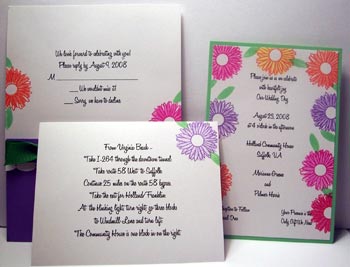 We look forward to celebrating with you!
Please reply by August 9, 2008
M
We wouldn't miss it
Sorry, we have to decline
From Virginia Beach -
Take I-264 through the downtown tunnel
Take route 58 West to Suffolk
Continue 25 miles on the route 58 bypass
Take the exit for Holland/Franklin
At the blinking light, turn right; go three blocks
to Windmill-Lane and turn left
The Community House is one block on on the right
Please join us as we celebrate
with heartfelt joy
Our Wedding Day
August 23, 2008
at 4 o'clock in the afternoon
Holland Community House
Suffolk, VA
Marianne Greene
and
Palmer Harris
to Follow
Your Presence is the
Only Gift We Need